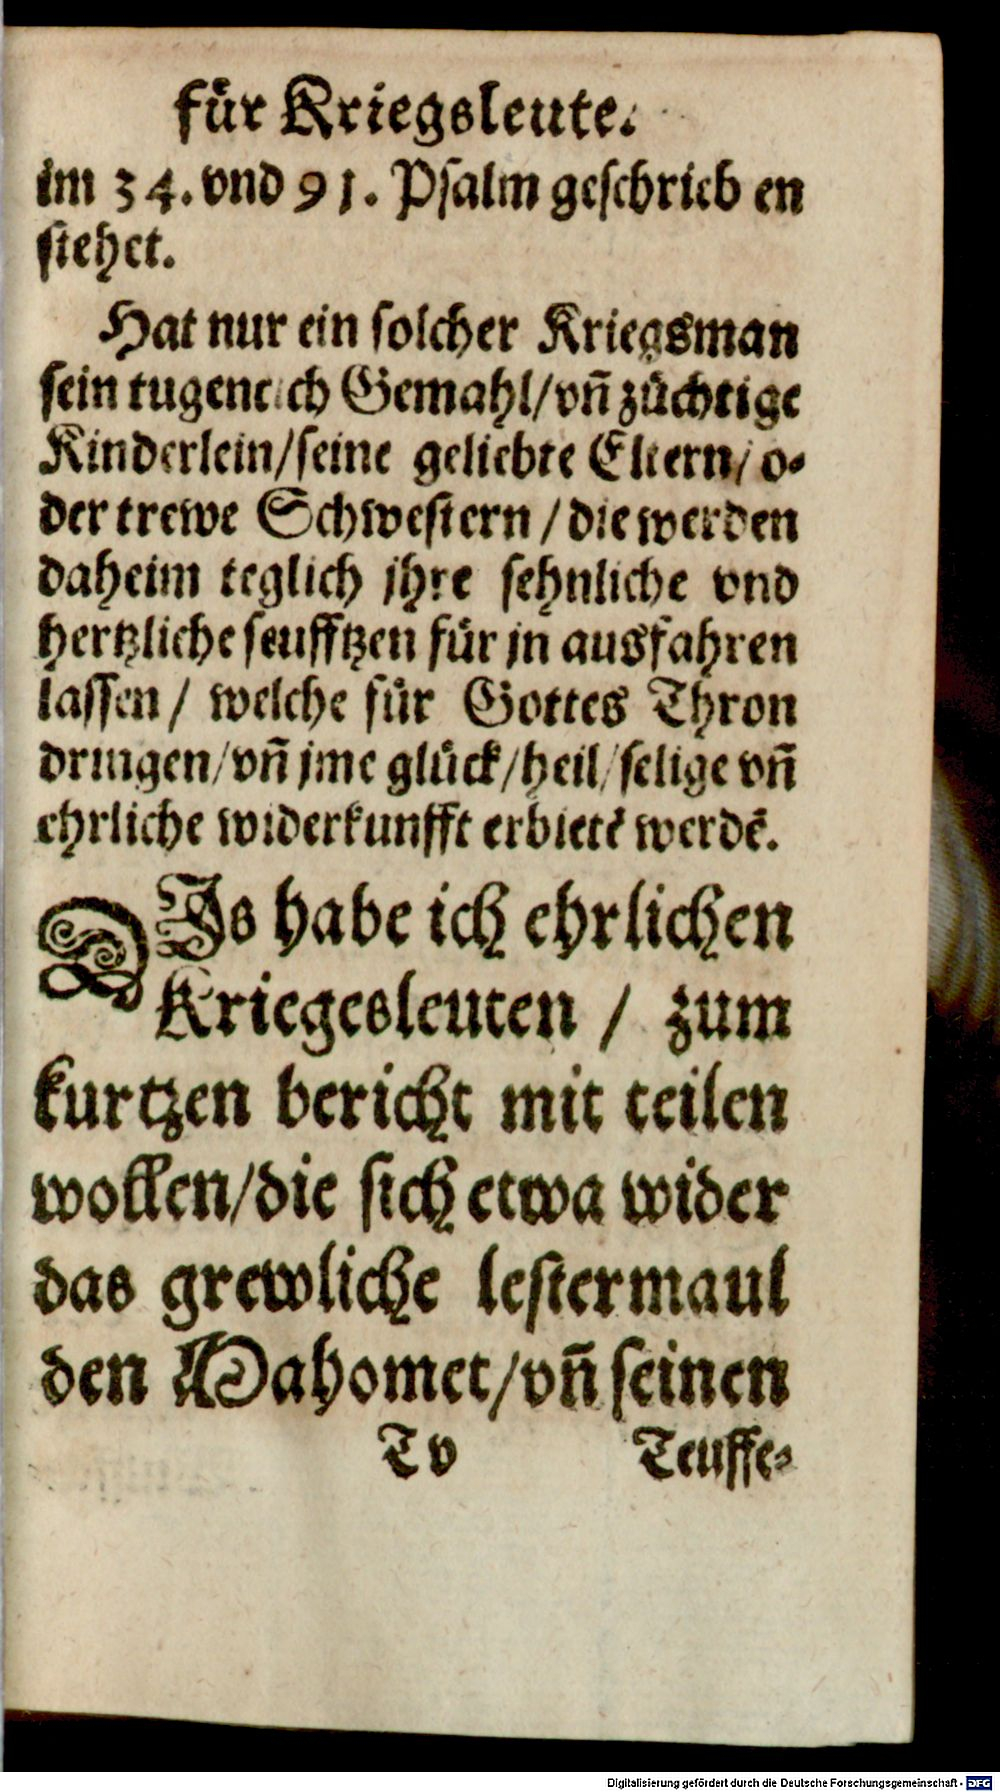 für Kriegsleute.
im 34. vnd 91. Psalm geschrieb en
stehet.
Hat nur ein solcher Kriegsman
sein tugentlich Gemahl/vn̄ züchtige
Kinderlein/seine geliebte Eltern/o-
der trewe Schwestern/die werden
daheim teglich jhre sehnliche vnd
hertzliche seufftzen für jn ausfahren
lassen/ welche für Gottes Thron
dringen/vn̄ jme glück/heil/selige vn̄
ehrliche widerkunfft erbietē werdē.
DIs habe ich ehrlichen
Kriegesleuten / zum
kurtzen bericht mit teilen
wollen/die sich etwa wider
das grewliche lestermaul
den Mahomet/vn̄ seinen
T v Teuffe-
Digitalisierung gefördert durch die Deutsche Forschungsgemeinschaft - DFG